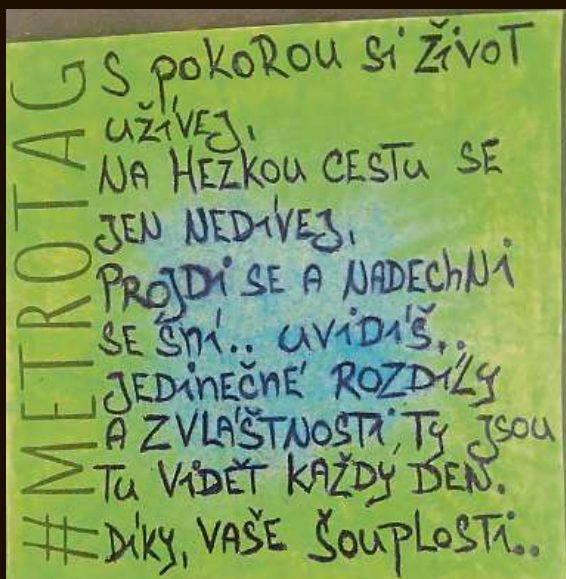 #METROTAG
S POKOROU Si ŽiVOT
UŽÍVEJ,
NA HEZKOU CESTU SE
JEN NEDÍVEJ,
PROJDi SE A NADEChNi
SE Sní.. UViDíŠ..
JEDiNEČNÉ ROZDíLY
A ZVLÁŠTNOSTi, TY JSOU
TU ViDĚT KAŽDÝ DEN.
DíKY, VAŠE ŠOUPLOSTi..